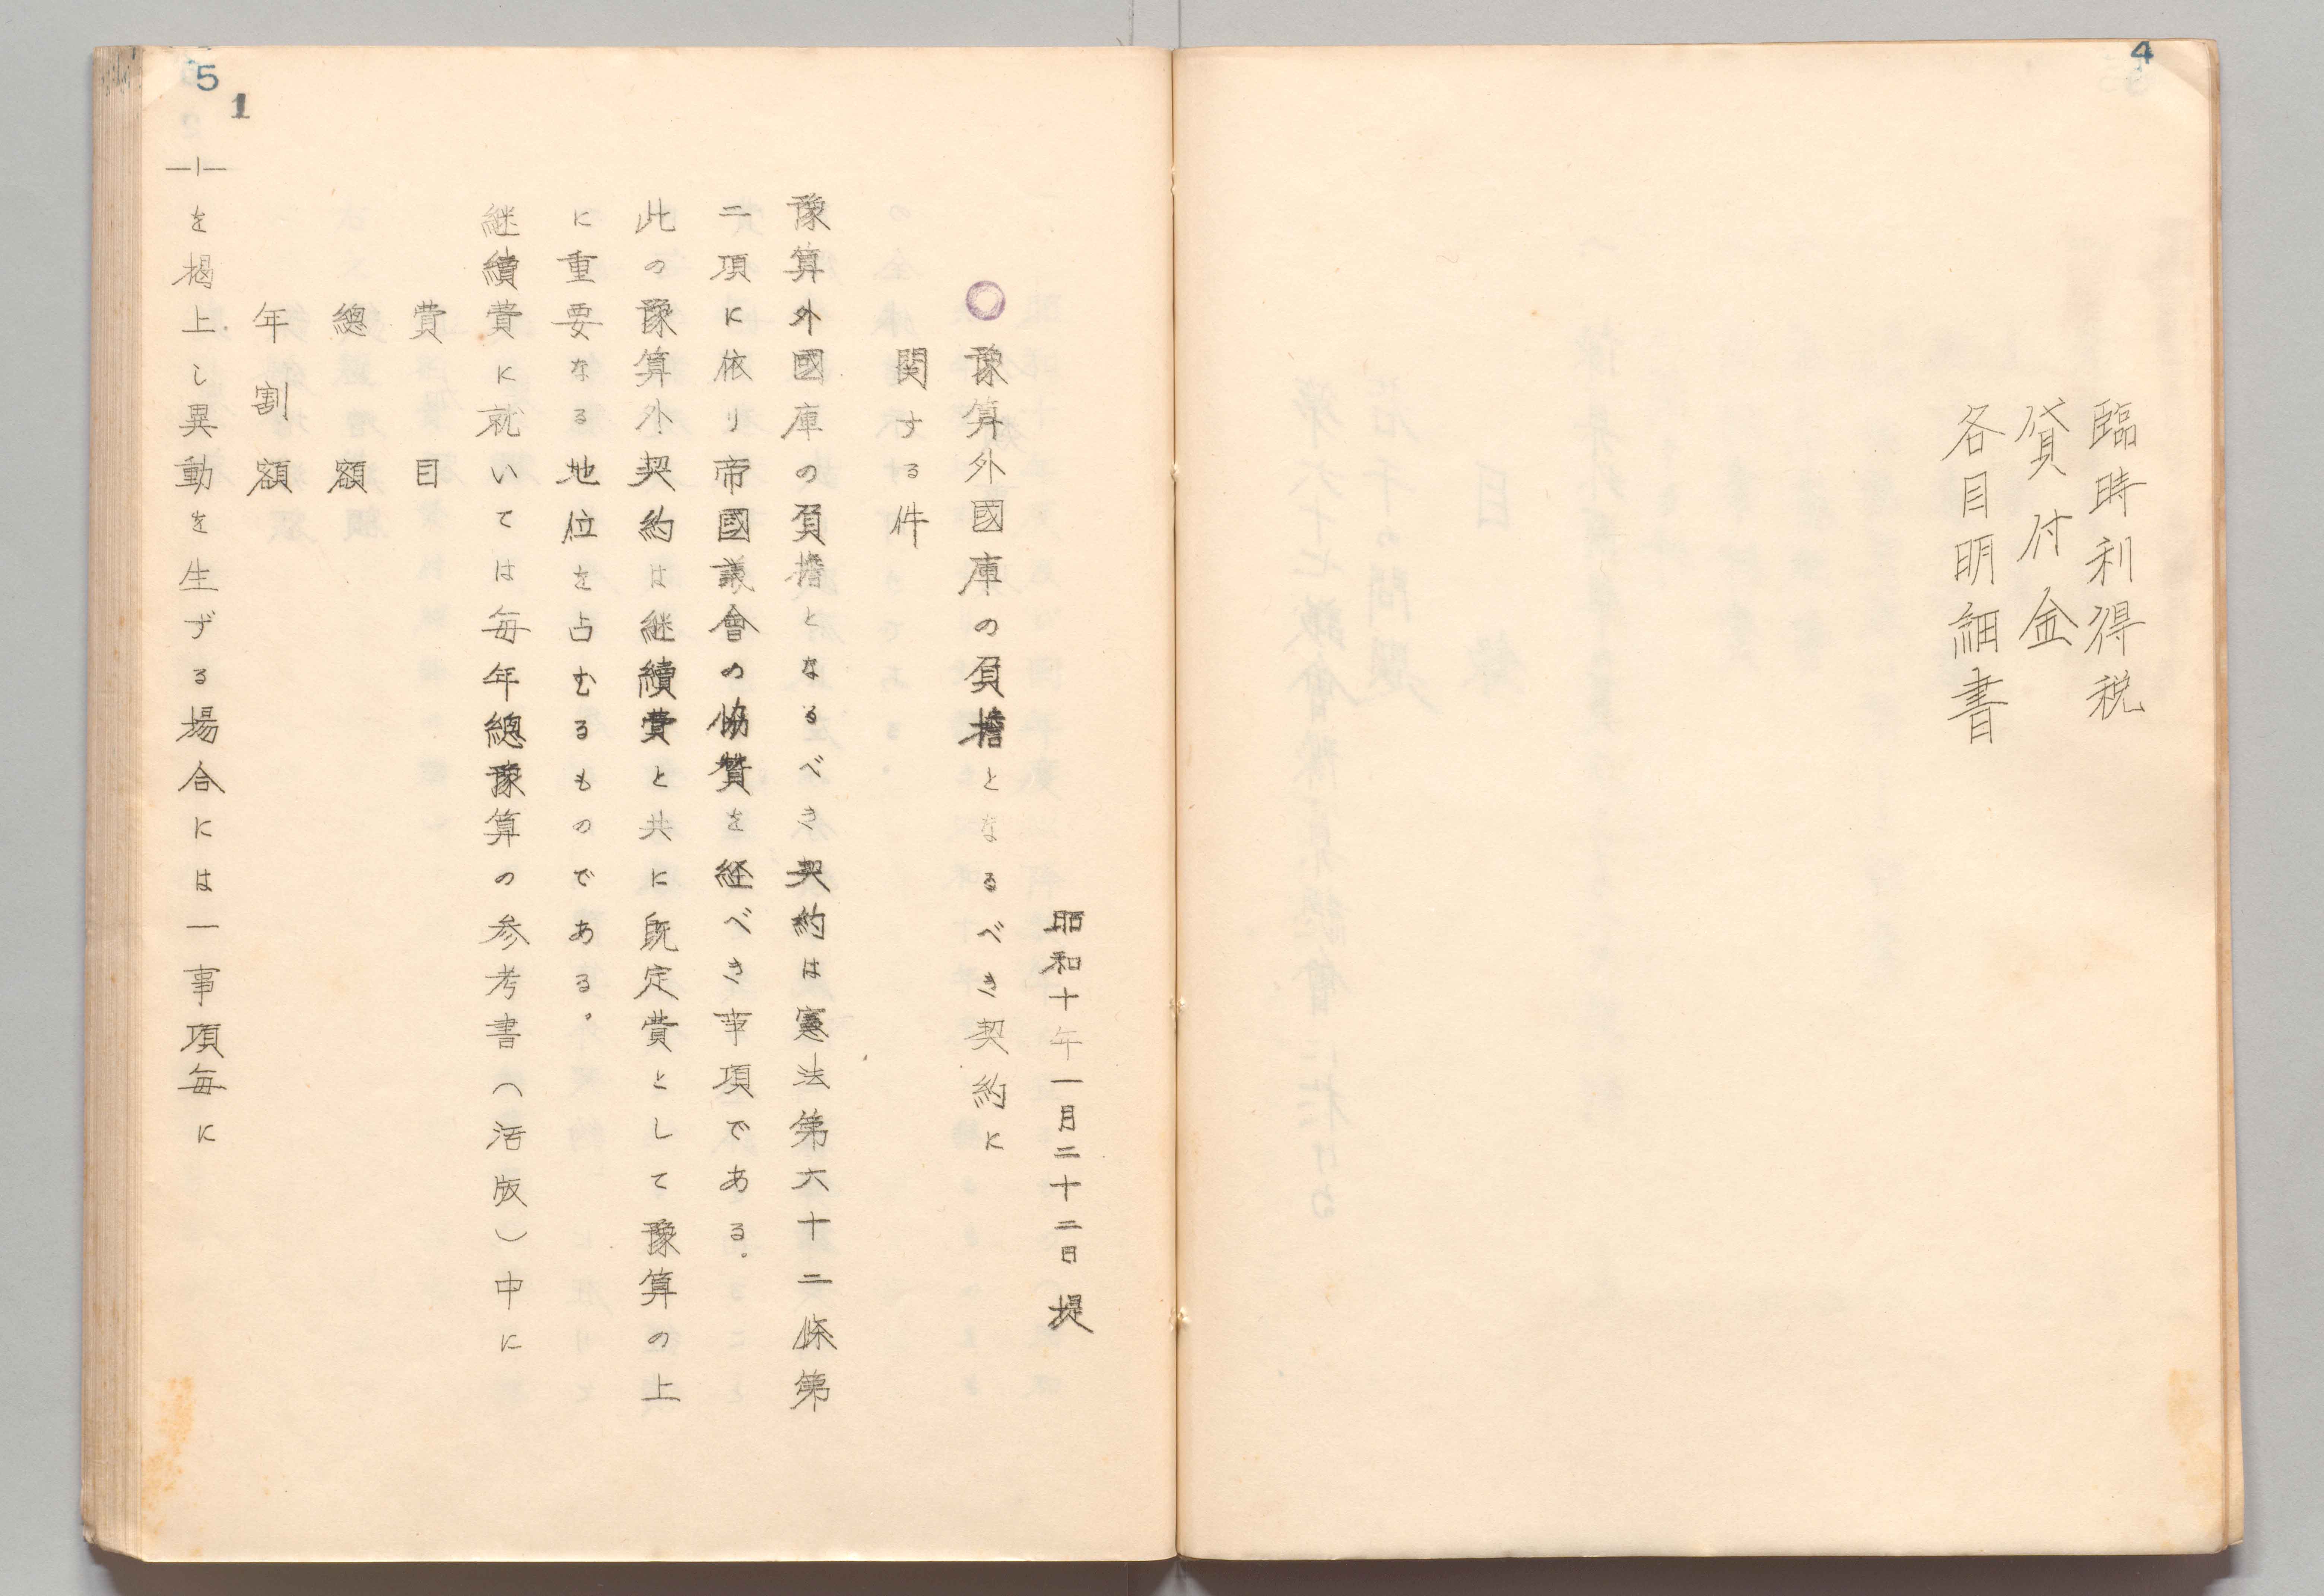 4
臨時利得税
貸付金
各目明細書
5
1
昭和十年一月二十二日 堤
○豫算外國庫の負擔となるべき契約に
関する件
豫算外國庫の負擔となるべき契約は憲法第六十二條第
二項に依り帝國議會の協賛を経べき事項である。
此の豫算外契約は継續費と共に既定費として豫算の上
に重要なる地位を占むるものである。
継續費に就いては毎年總豫算の参考書(活版)中に
費目
總額
年割額
を掲上し異動を生ずる場合には一事項毎に
—1—